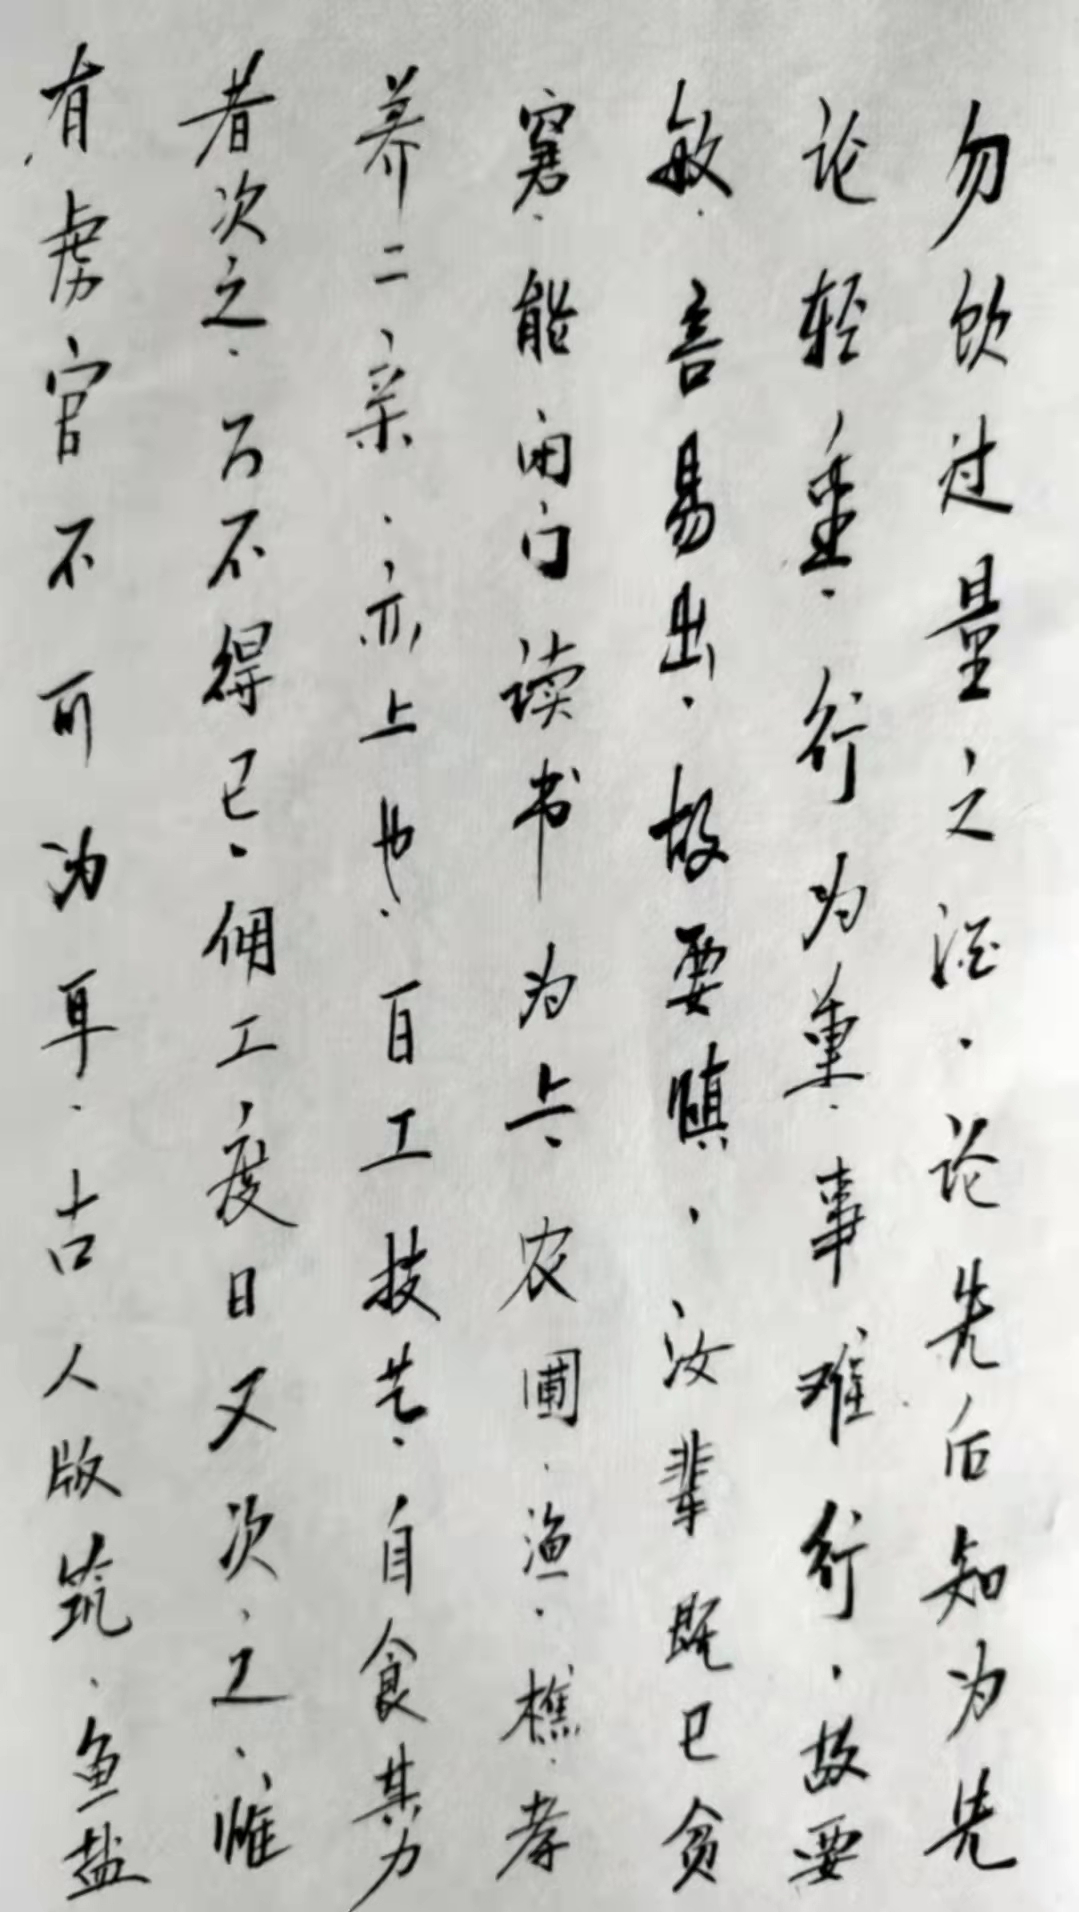 勿饮过量之酒.论先后知为先
论轻重.行为重.事难行.故要
敏.言易出.故要慎.汝辈既已贫
窘.能闭门读书为上.农圃.渔.樵.孝
养二亲.亦上也.百工技艺.自食其力
者次之.万不得已.佣工度日又次之.惟
有虐官不可为耳.古人版筑.鱼盐